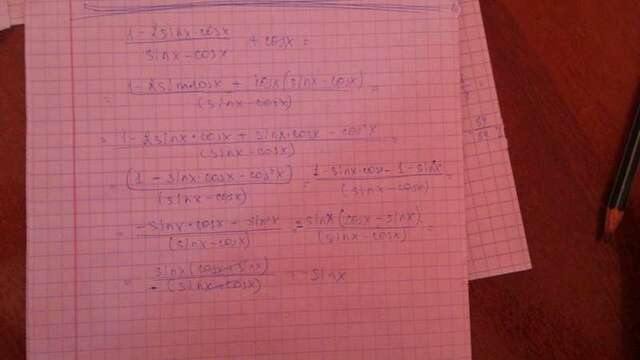 1-2sinx·cosx / sinx-cosx + cosx =
= 1-2sinxcosx + cosx(sinx-cosx) / (sinx-cosx) =
= 1-2sinx·cosx + sinx·cosx - cos²x / (sinx-cosx) =
= (1-sinx·cosx-cos²x) / (sinx-cosx) = 1-sinx·cosx-1-sin²x / (sinx-cosx) =
= -sinx·cosx-sin²x / (sinx-cosx) = -sinx(cosx-sinx) / (sinx-cosx) =
= sinx(cosx-sinx) / -(sinx-cosx) = sinx